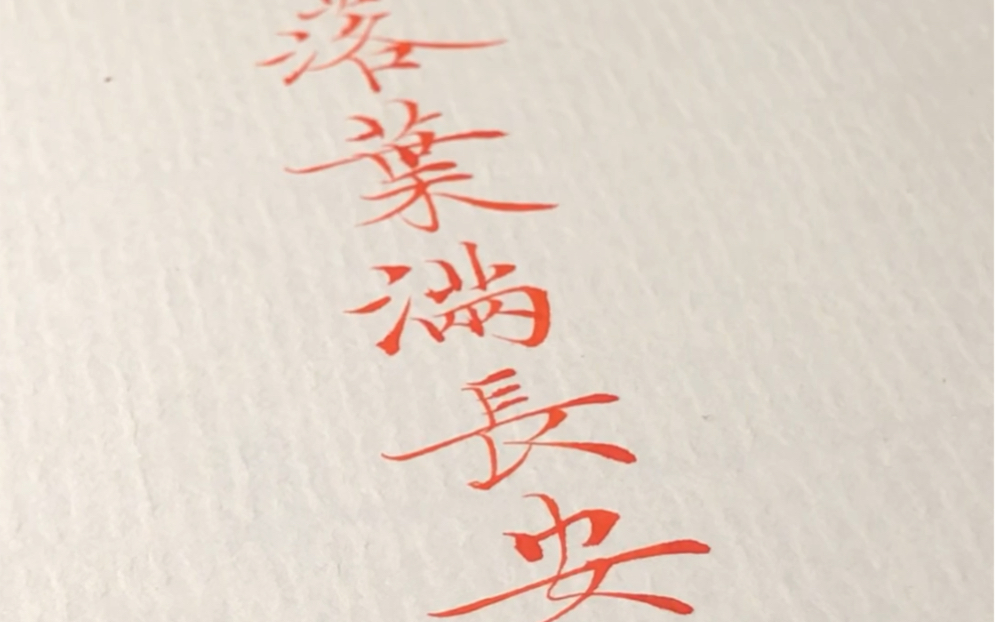 落葉滿長安